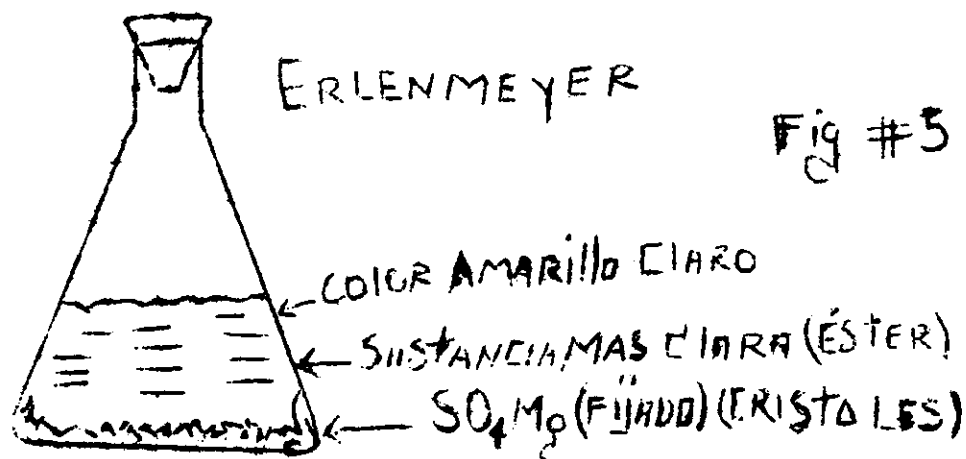 ERLENMEYER
Fig #5
COLOR AMARillo CLARO
SUSTANCIA MAS CLARA (ÉSTER)
SO₄Mg (FIJADO) (CRISTALES)